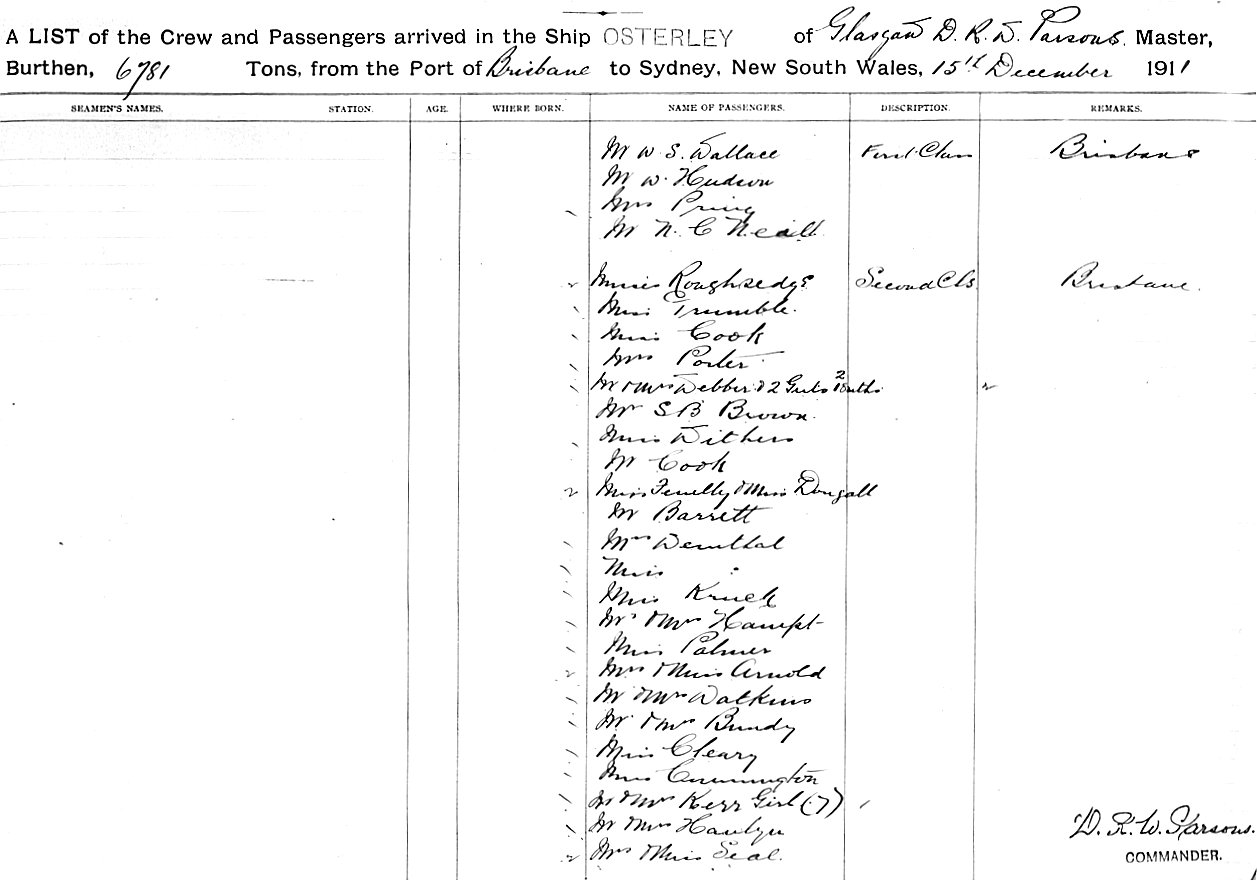 A LIST of the Crew and Passengers arrived in the Ship OSTERLEY of Glasgow D. R. W. Parsons, Master,
Burthen, 6781 Tons, from the Port of Brisbane to Sydney, New South Wales, 15th December 1911
SEAMEN'S NAMES. STATION. AGE. WHERE BORN. NAME OF PASSENGERS. DESCRIPTION. REMARKS.
Mr W. S. Wallace First Class Brisbane
Mr W. Hudson
Mrs Pring
Mr N. C Neill
Misses Roughsedge Second Cls Brisbane.
Miss Trumble.
Miss Cook
Mrs Porter
Mr & Mrs Webber & 2
Mr S B Brown.
Miss Withers
Mr Cook
Miss Fenelly & Miss Dougall
Mr Barrett
Mrs Demthal
Miss :
Miss Kruck
Mr & Mrs Haupt
Miss Palmer
Mrs & Miss Arnold
Mr & Mrs Watkins
Mr & Mrs Bundy
Miss Cleary
Miss Cunnington
Mr & Mrs Kerr Girl (7)
Mr & Mrs
Mrs & Miss Seal.
D. R. W. Parsons.
COMMANDER.